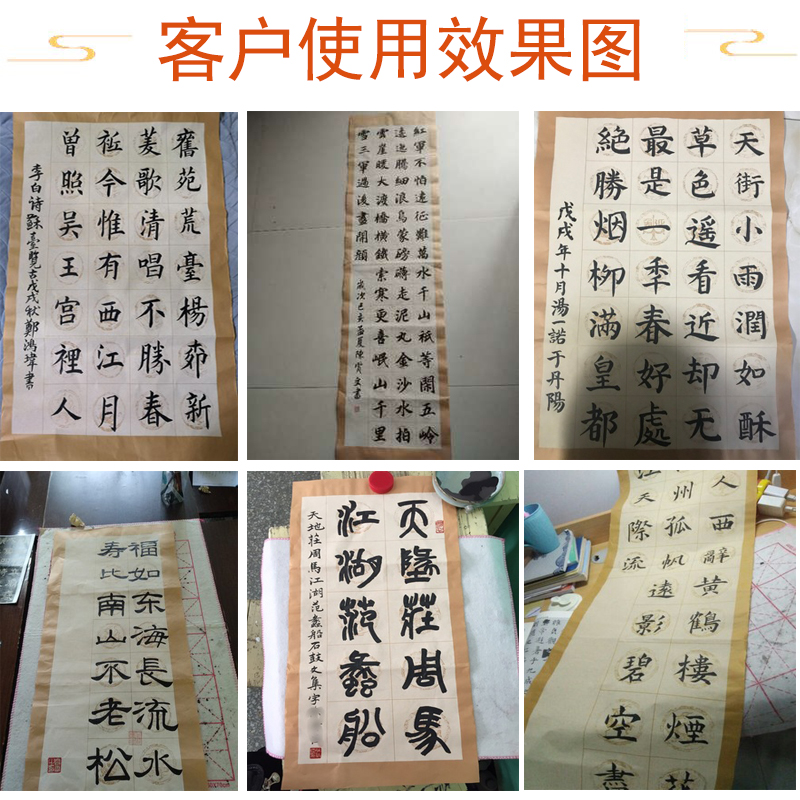 客户使用效果图
舊苑荒臺楊栁新
菱歌清唱不勝春
祗今惟有西江月
曾照吴王宫裡人
李白诗蘇臺覽古戊戌秋鄭鴻瑋書
紅軍不怕遠征難萬水千山祇等閑五岭
逶迤騰細浪烏蒙磅礴走泥丸金沙水拍
雲崖暖大渡橋橫鐵索寒更喜岷山千里
雪三軍過後盡開顏
歲次己亥孟夏陳寶文書
天街小雨潤如酥
草色遥看近却无
最是一年春好處
絶勝烟柳滿皇都
戊戌年十月湯一諾于丹陽
福如东海長流水
寿比南山不老松
天地莊周馬
江湖范蠡船
天地莊周馬江湖范蠡船石鼓文集字
人西辭黄鶴樓煙花
州孤帆遠影碧空盡
江天際流